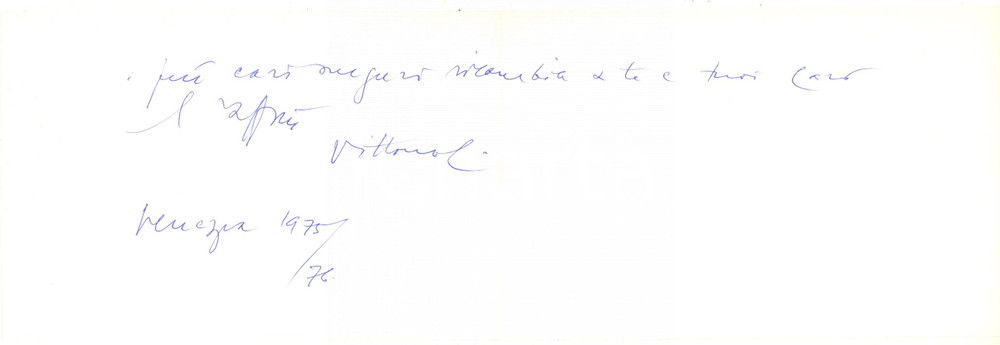 i più cari auguri ricambia a te e tuoi cari
Venezia 1975/
76.